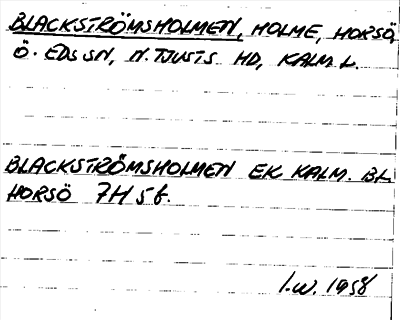 BLACKSTRÖMSHOLMEN, HOLME, HORSÖ,
Ö. EDS SN, N. TJUSTS HD, KALM. L.
BLACKSTRÖMSHOLMEN EK KALM. BL.
HORSÖ 7H 5f.
I.W. 1958